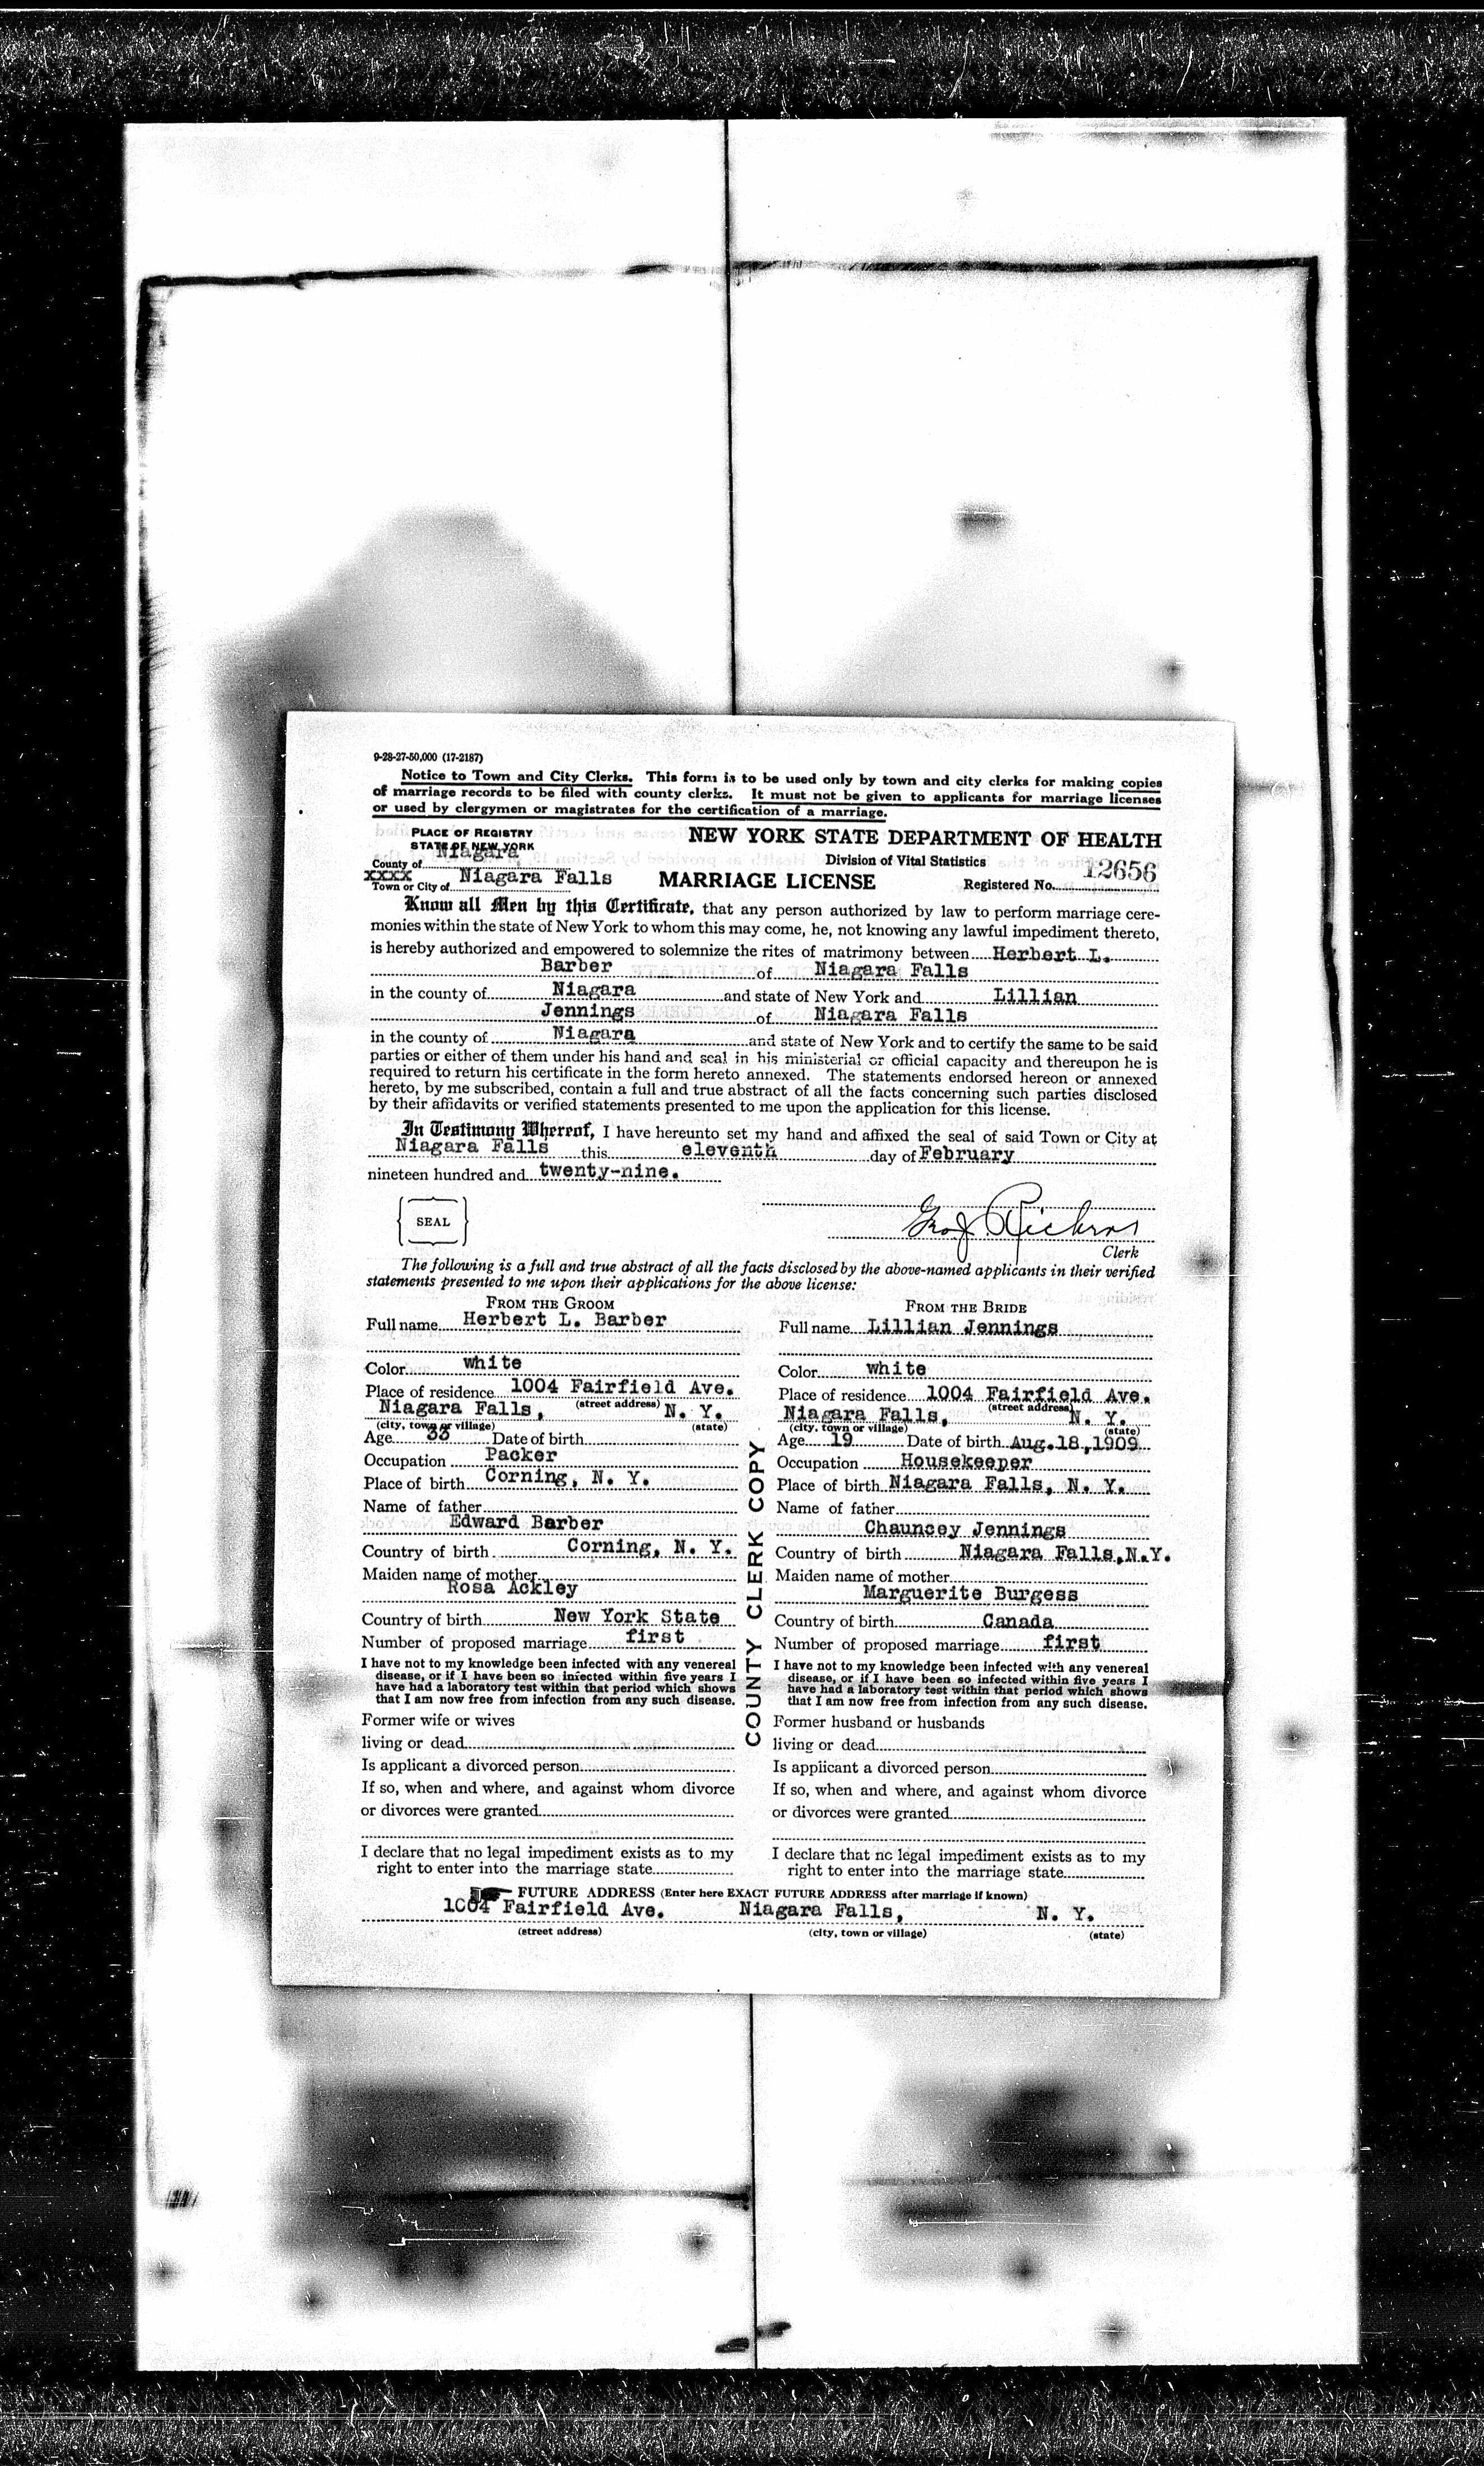 9-28-27-50,000 (17-2187)
Notice to Town and City Clerks. This form is to be used only by town and city clerks for making copies
of marriage records to be filed with county clerks. It must not be given to applicants for marriage licenses
or used by clergymen or magistrates for the certification of a marriage.
PLACE OF REGISTRY
STATE OF NEW YORK
NEW YORK STATE DEPARTMENT OF HEALTH
County of Niagara
Division of Vital Statistics
XXXX
Town or City of Niagara Falls
MARRIAGE LICENSE
Registered No. 12656
Know all Men by this Certificate, that any person authorized by law to perform marriage cere-
monies within the state of New York to whom this may come, he, not knowing any lawful impediment thereto,
is hereby authorized and empowered to solemnize the rites of matrimony between Herbert L.
Barber of Niagara Falls
in the county of Niagara and state of New York and Lillian
Jennings of Niagara Falls
in the county of Niagara and state of New York and to certify the same to be said
parties or either of them under his hand and seal in his ministerial or official capacity and thereupon he is
required to return his certificate in the form hereto annexed. The statements endorsed hereon or annexed
hereto, by me subscribed, contain a full and true abstract of all the facts concerning such parties disclosed
by their affidavits or verified statements presented to me upon the application for this license.
In Testimony Whereof, I have hereunto set my hand and affixed the seal of said Town or City at
Niagara Falls this eleventh day of February
nineteen hundred and twenty-nine.
SEAL
Clerk
The following is a full and true abstract of all the facts disclosed by the above-named applicants in their verified
statements presented to me upon their applications for the above license:
FROM THE GROOM
Full name Herbert L. Barber
Color white
Place of residence 1004 Fairfield Ave.
(street address)
Niagara Falls, N. Y.
(city, town or village) (state)
Age 33 Date of birth
Occupation Packer
Place of birth Corning, N. Y.
Name of father
Edward Barber
Country of birth Corning, N. Y.
Maiden name of mother
Rosa Ackley
Country of birth New York State
Number of proposed marriage first
I have not to my knowledge been infected with any venereal
disease, or if I have been so infected within five years I
have had a laboratory test within that period which shows
that I am now free from infection from any such disease.
Former wife or wives
living or dead
Is applicant a divorced person
If so, when and where, and against whom divorce
or divorces were granted
I declare that no legal impediment exists as to my
right to enter into the marriage state
COUNTY CLERK COPY
FROM THE BRIDE
Full name Lillian Jennings
Color white
Place of residence 1004 Fairfield Ave.
(street address)
Niagara Falls, N. Y.
(city, town or village) (state)
Age 19 Date of birth Aug.18,1909
Occupation Housekeeper
Place of birth Niagara Falls, N. Y.
Name of father
Chauncey Jennings
Country of birth Niagara Falls,N.Y.
Maiden name of mother
Marguerite Burgess
Country of birth Canada
Number of proposed marriage first
I have not to my knowledge been infected with any venereal
disease, or if I have been so infected within five years I
have had a laboratory test within that period which shows
that I am now free from infection from any such disease.
Former husband or husbands
living or dead
Is applicant a divorced person
If so, when and where, and against whom divorce
or divorces were granted
I declare that no legal impediment exists as to my
right to enter into the marriage state
FUTURE ADDRESS (Enter here EXACT FUTURE ADDRESS after marriage if known)
1004 Fairfield Ave. Niagara Falls, N. Y.
(street address) (city, town or village) (state)